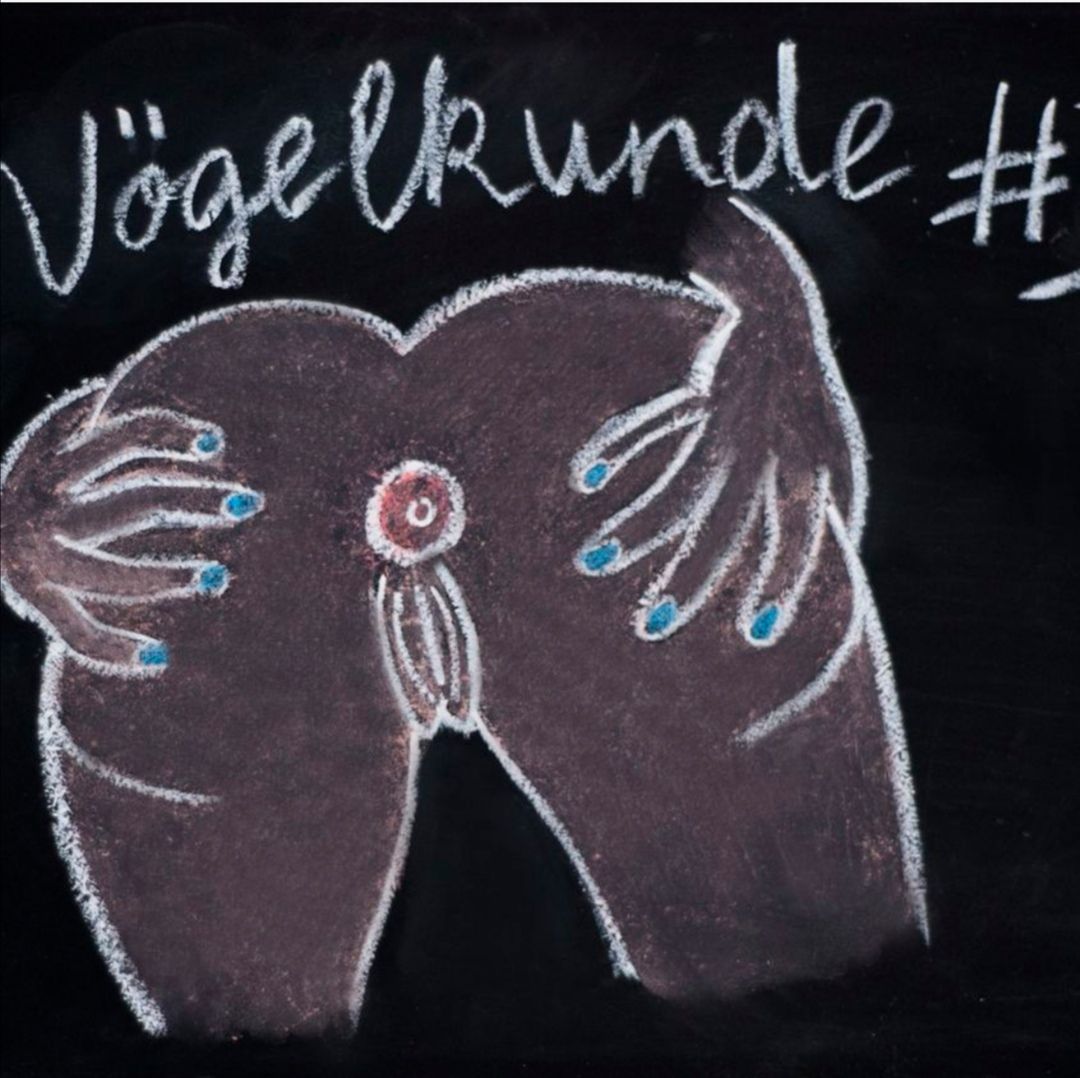 Vögelkunde #